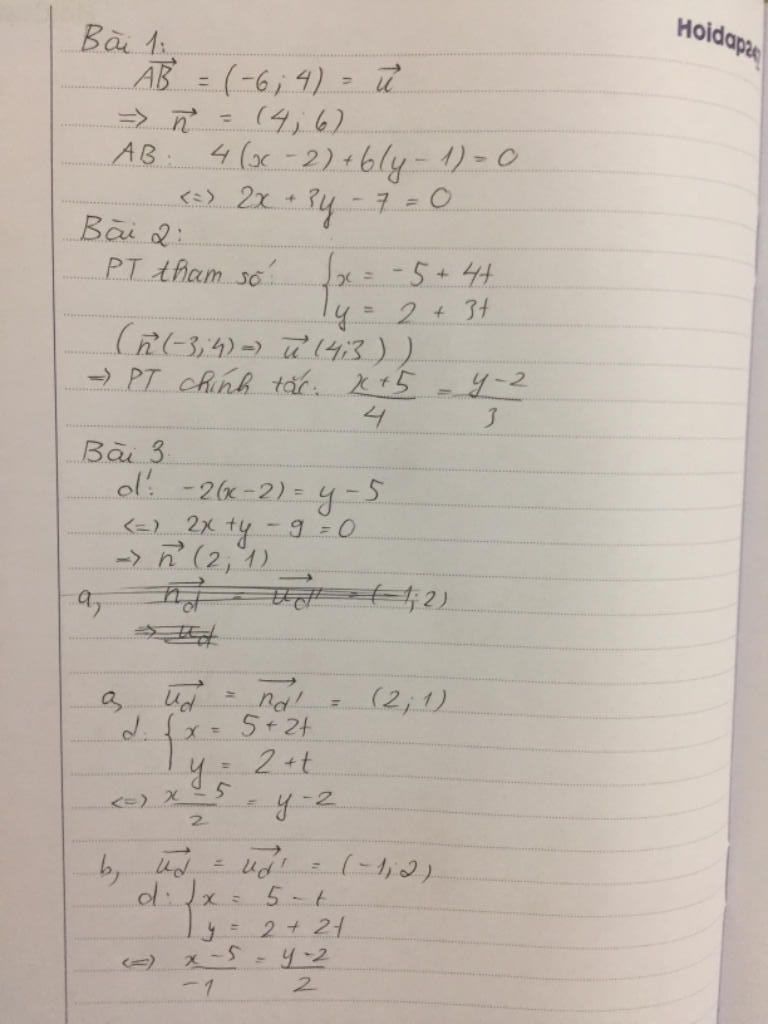 Hoidap247
Bài 1:
$\overrightarrow{AB}$ = (-6; 4) = $\vec{u}$
=> $\vec{n}$ = (4; 6)
AB: 4(x - 2) + 6(y - 1) = 0
<=> 2x + 3y - 7 = 0
Bài 2:
PT tham số: { x = -5 + 4t
y = 2 + 3t
($\vec{n}$(-3; 4) => $\vec{u}$(4; 3))
=> PT chính tắc: $\frac{x+5}{4}$ = $\frac{y-2}{3}$
Bài 3
d': -2(x - 2) = y - 5
<=> 2x + y - 9 = 0
=> $\vec{n}$(2; 1)
a, $\overrightarrow{n_d}$ = $\overrightarrow{u_{d'}}$ = (-1; 2)
=> $u_d$
a, $\overrightarrow{u_d}$ = $\overrightarrow{n_{d'}}$ = (2; 1)
d: { x = 5 + 2t
y = 2 + t
<=> $\frac{x-5}{2}$ = y - 2
b, $\overrightarrow{u_d}$ = $\overrightarrow{u_{d'}}$ = (-1; 2)
d: { x = 5 - t
y = 2 + 2t
<=> $\frac{x-5}{-1}$ = $\frac{y-2}{2}$